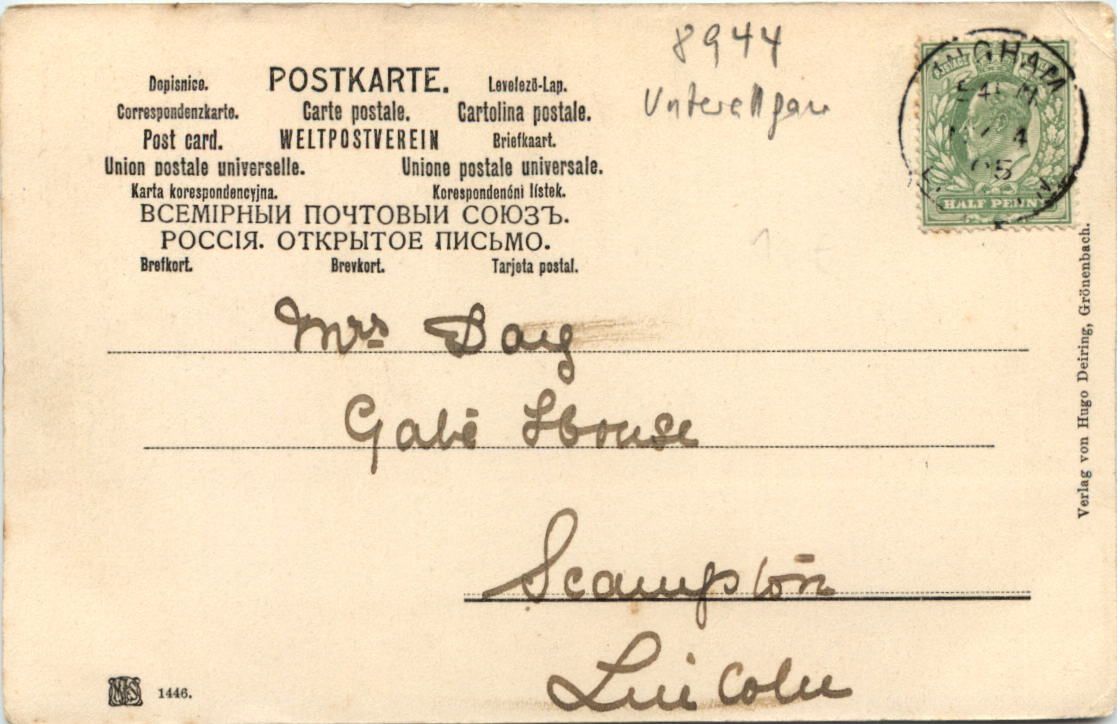 8944
Unterallgäu
Dopisnice. POSTKARTE. Levelező-Lap.
Correspondenzkarte. Carte postale. Cartolina postale.
Post card. WELTPOSTVEREIN Briefkaart.
Union postale universelle. Unione postale universale.
Karta korespondencyjna. Korespondenční lístek.
ВСЕМІРНЫЙ ПОЧТОВЫЙ СОЮЗЪ.
РОССІЯ. ОТКРЫТОЕ ПИСЬМО.
Brefkort. Brevkort. Tarjeta postal.
INGHAM
4
05
HALF PENNY
Mrs Doig
Gate House
Scampton
Lincoln
Verlag von Hugo Deiring, Grönenbach.
1446.